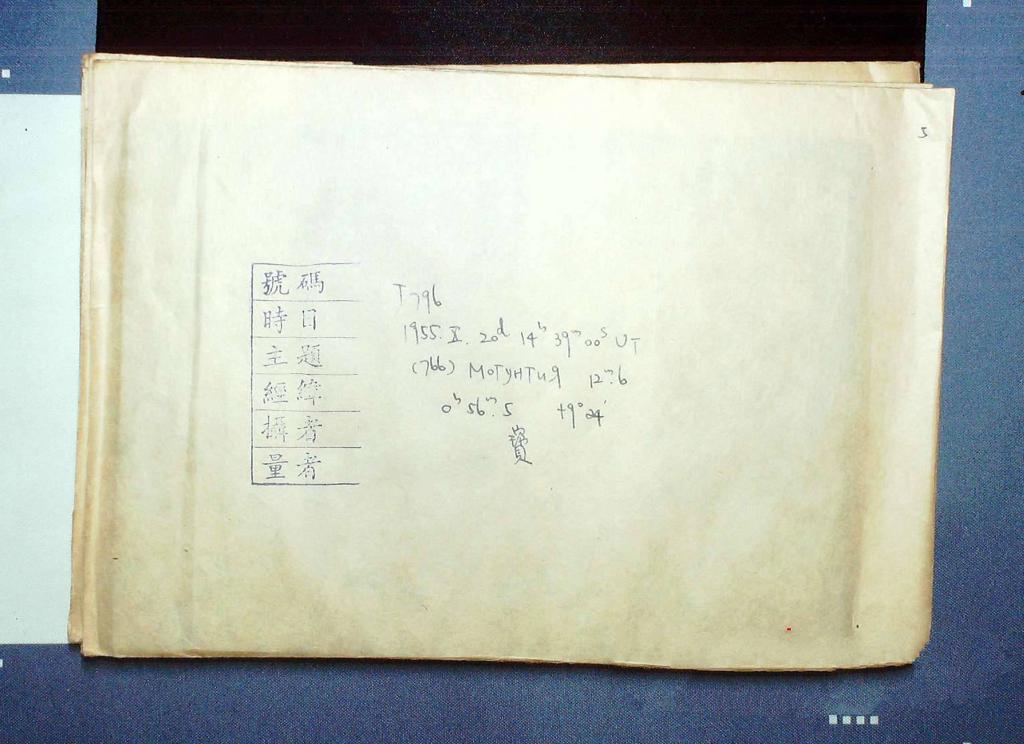 5
號碼 T796
時日 1955. X. 20d 14h 39m 00s UT
主題 (766) Могунтия 12m.6
經緯 0h 56m.5 +9° 24'
攝者
量者